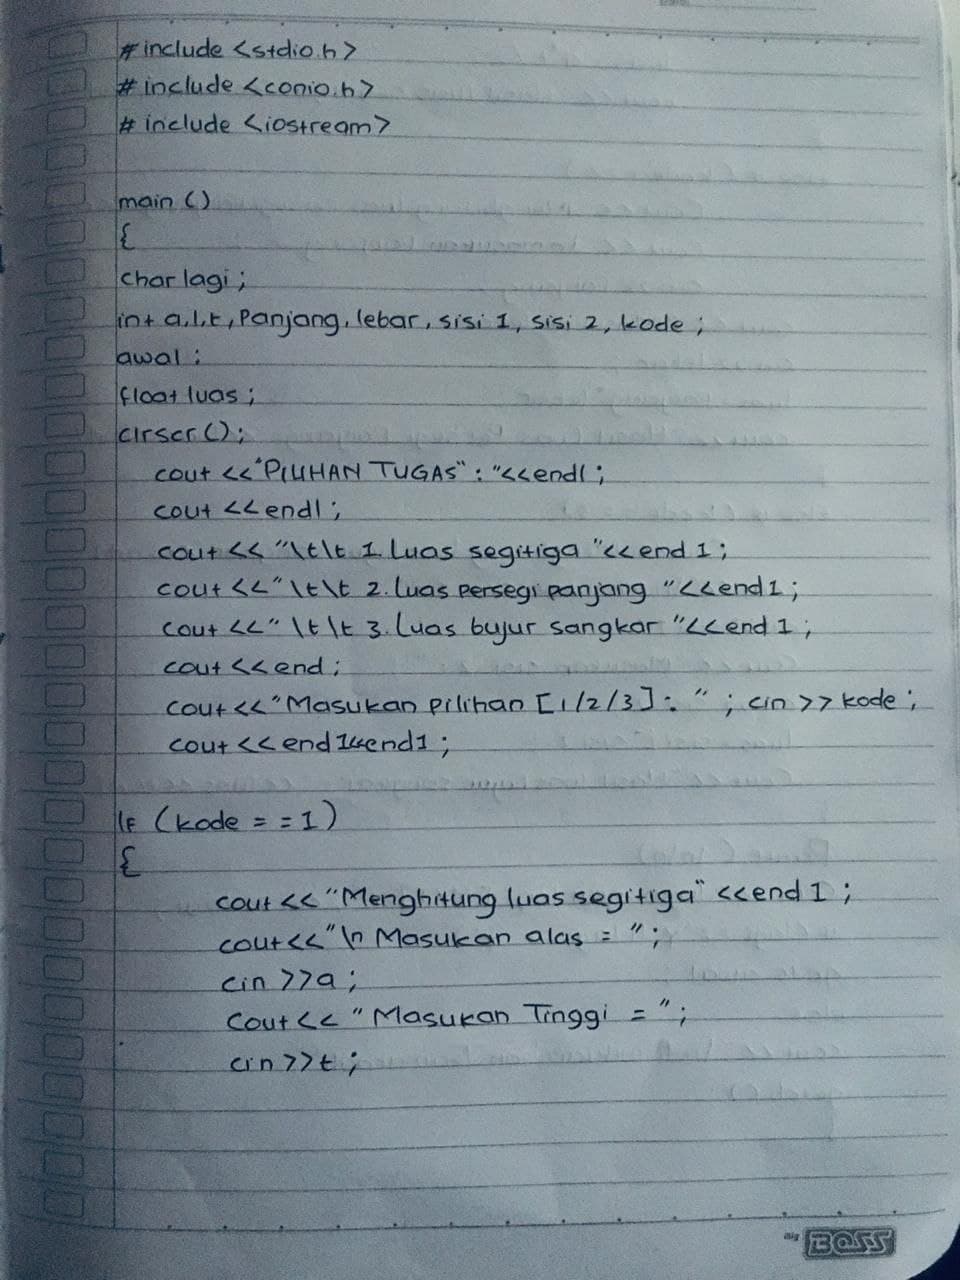 #include <stdio.h>
#include <conio.h>
#include <iostream>
main ()
{
char lagi;
int a,l,t, Panjang, lebar, sisi 1, sisi 2, kode;
awal:
float luas;
clrscr();
cout <<"PILIHAN TUGAS" : "<<endl;
cout <<endl;
cout << "\t\t 1. Luas segitiga "<<end1;
cout <<" \t\t 2. Luas persegi panjang "<<end1;
cout <<" \t\t 3. Luas bujur sangkar "<<end1;
cout <<end;
cout <<"Masukan pilihan [1/2/3]: " ; cin >> kode;
cout <<end1<<end1;
IF (kode = = 1)
{
cout << "Menghitung luas segitiga" <<end 1;
cout<<"\n Masukan alas = ";
cin >>a;
Cout << " Masukan Tinggi = ";
cin >>t;
Big BOSS